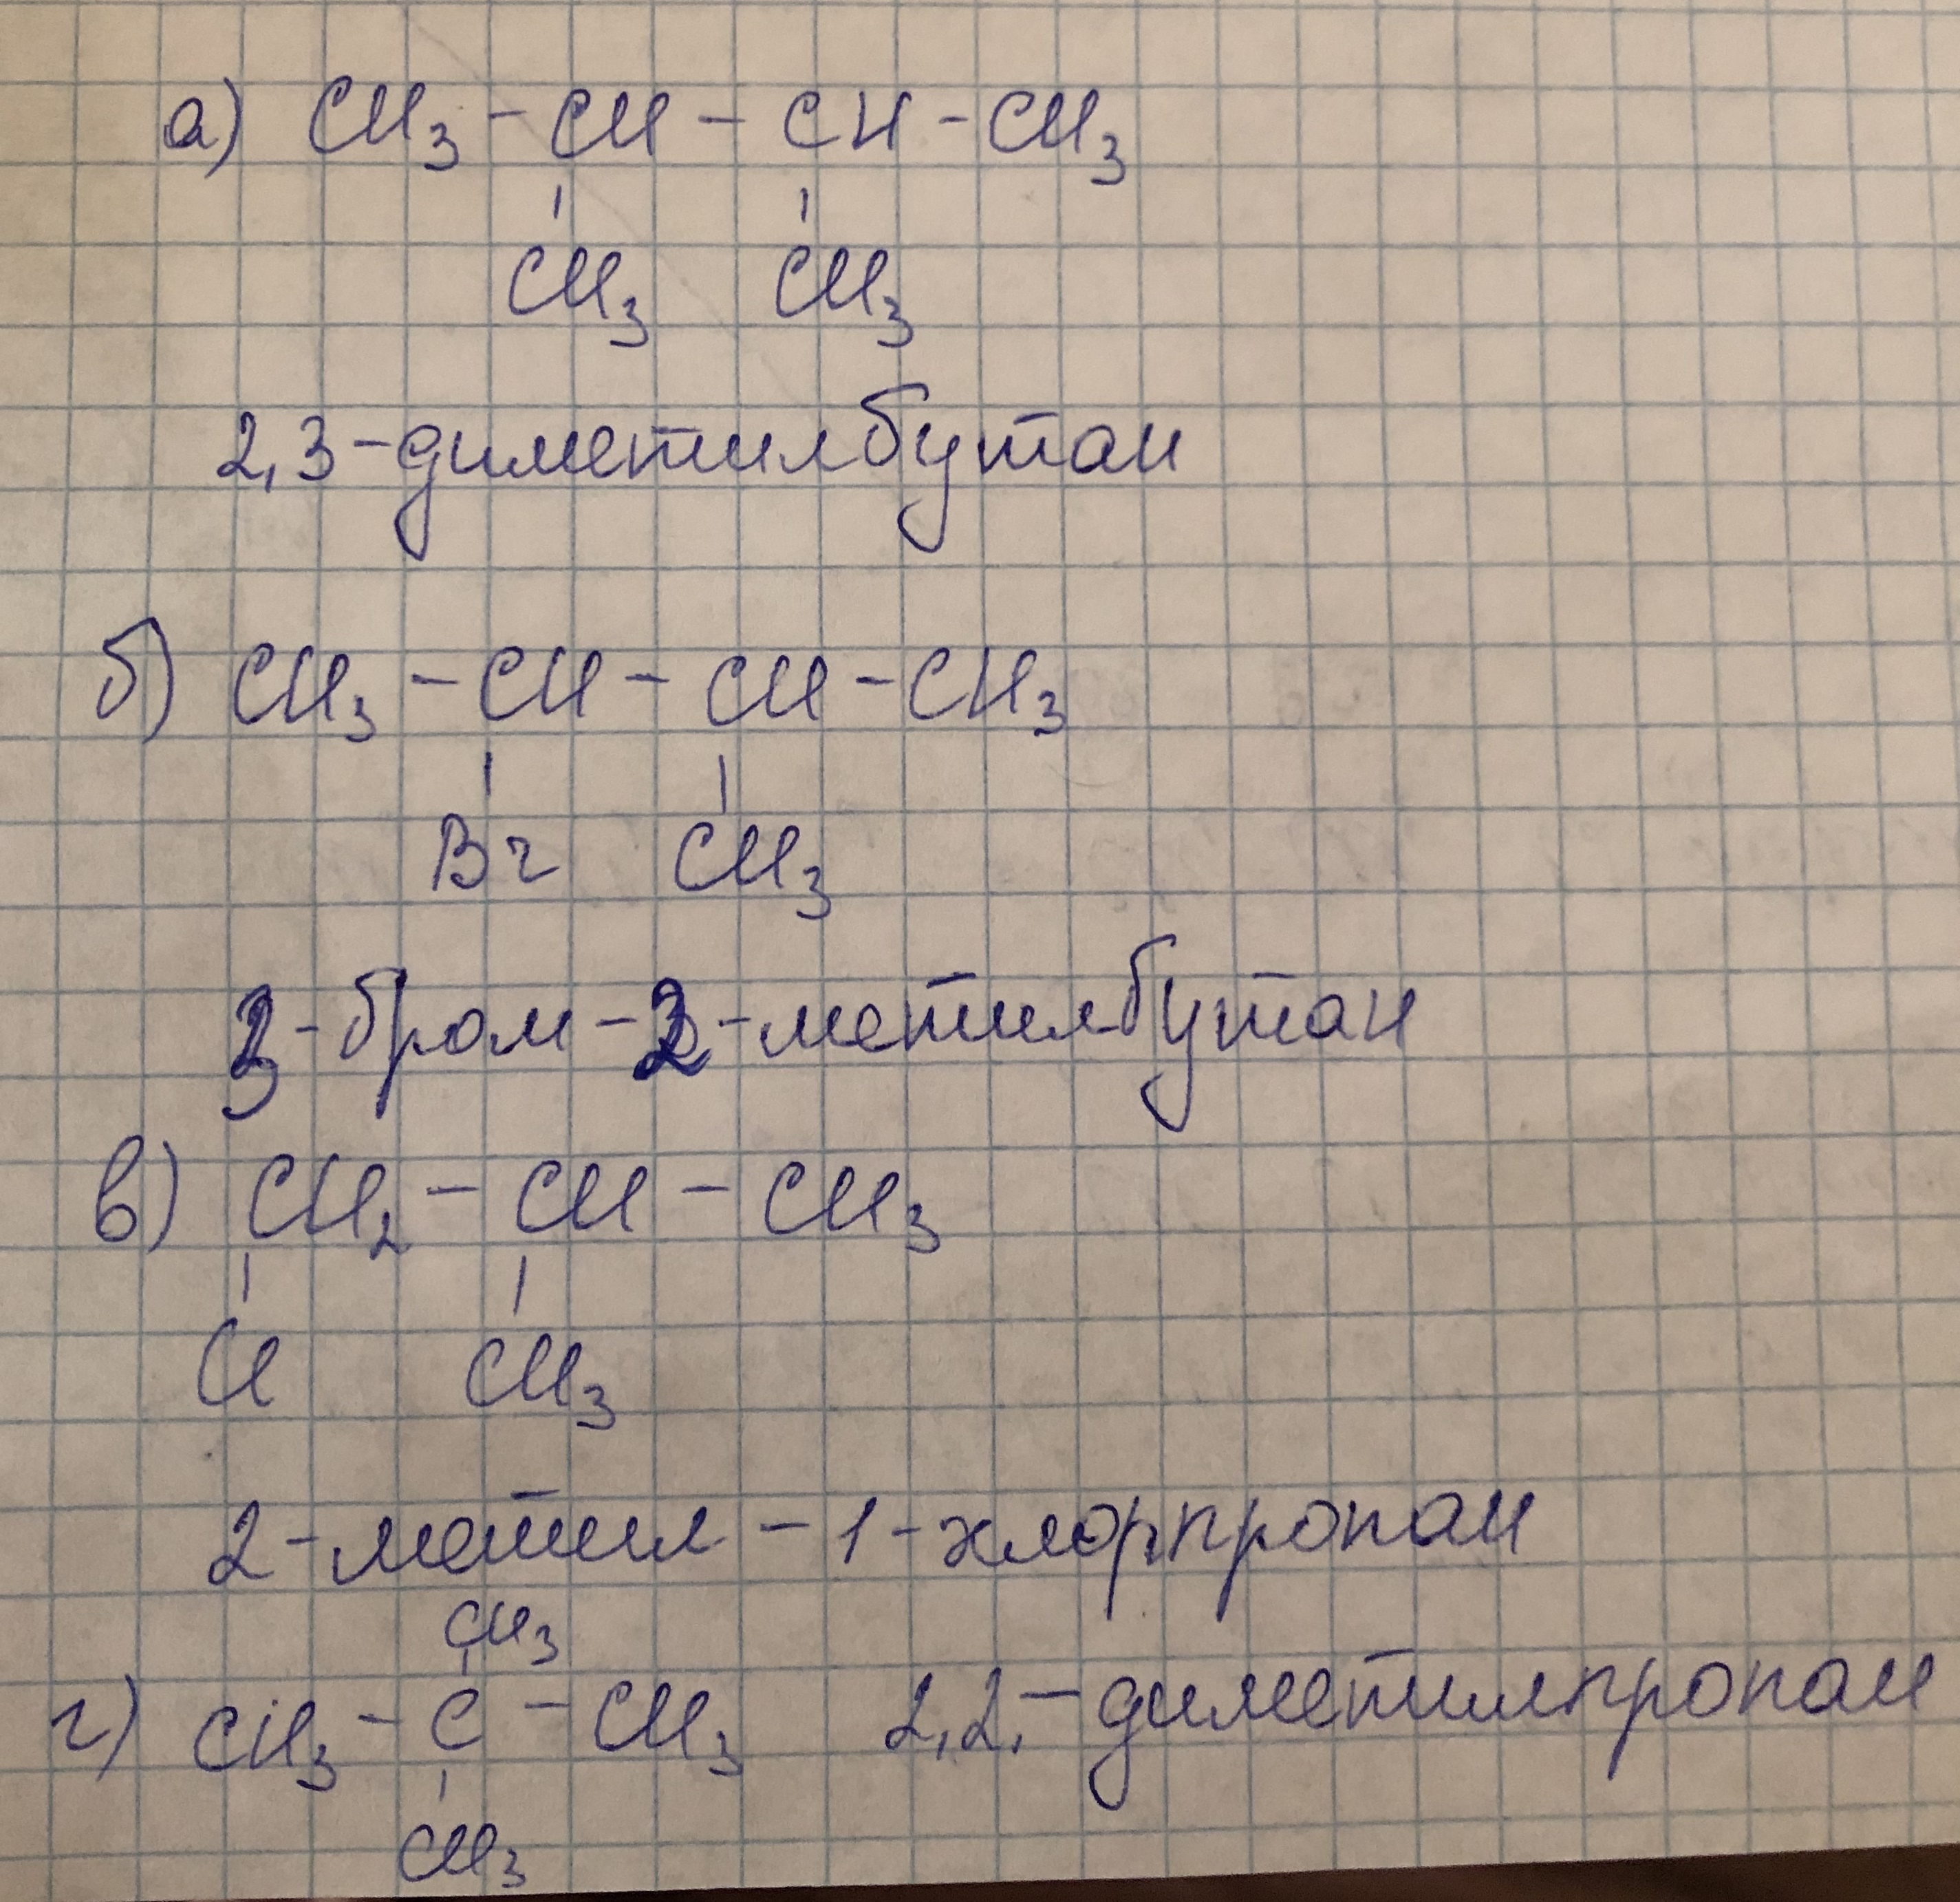 а) CH3 - CH - CH - CH3
CH3 CH3
2,3-диметилбутан
б) CH3 - CH - CH - CH3
Br CH3
3-бром-2-метилбутан
в) CH2 - CH - CH3
Cl CH3
2-метил-1-хлорпропан
CH3
г) CH3 - C - CH3 2,2,-диметилпропан
CH3